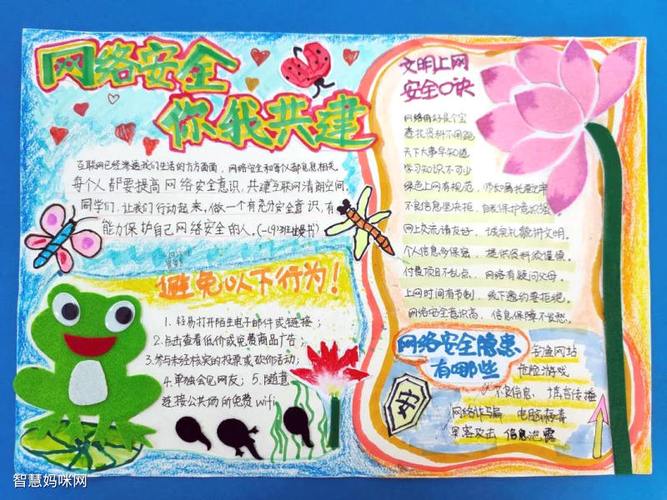 网络安全
你我共建
互联网已经渗透我们生活的方方面面，网络安全和每个人都息息相关
每个人都要提高网络安全意识，共建互联网清朗空间。
同学们，让我们行动起来，做一个有充分安全意识，有
能力保护自己网络安全的人。
避免以下行为！
1. 轻易打开陌生电子邮件或链接；
2. 点击查看低价或免费商品广告；
3. 参与未经核实的投票或砍价活动；
4. 单独会见网友；5. 随意
连接公共场所免费wifi
文明上网
安全口诀
网络自有好是个宝
查找资料不用跑
天下大事早知道
学习知识不可少
绿色上网有规范，
不良信息坚决拒，自我保护意识强。
网上交流讲友好，诚实礼貌讲文明。
个人信息多保密，提供资料须谨慎。
付费项目不乱点，网络有疑问父母。
上网时间有节制，线下邀约要拒绝。
网络安全意识高，信息保障不发愁。
网络安全隐患
有哪些
钓鱼网站
危险游戏
不良信息，谣言传播
网络诈骗 电脑病毒
黑客攻击 信息泄露
安
智慧妈咪网